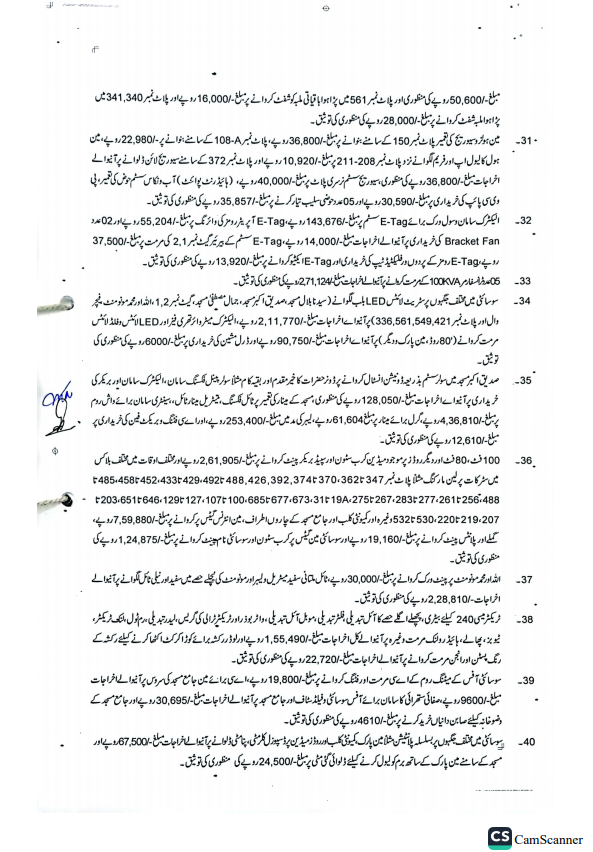 مبلغ -/50,600 روپے کی منظوری اور پلاٹ نمبر 561 میں پڑا ہوا باقیاتی ملبہ کو شفٹ کروانے پر مبلغ -/16,000 روپے اور پلاٹ نمبر 341,340 میں
پڑا ہوا ملبہ شفٹ کروانے پر مبلغ -/28,000 روپے کی منظوری کی توثیق۔
31۔ مین ہولز و سیوریج کی تعمیر پلاٹ نمبر 150 کے سامنے بنوانے پر مبلغ -/36,800 روپے، پلاٹ نمبر 108-A کے سامنے بنوانے پر -/22,980 روپے، مین
ہول کا لیول اپ اور فریم لگوانے نزد پلاٹ نمبر 208-211 پر مبلغ -/10,920 روپے اور پلاٹ نمبر 372 کے سامنے سیوریج لائن ڈلوانے پر آنیوالے
اخراجات مبلغ -/36,800 روپے کی منظوری، سیوریج سسٹم نرسری پلاٹ پر مبلغ -/40,000 روپے، (ہائیڈرنٹ پوائنٹ) آب و نکاس سسٹم حوض کی تعمیر، پی
وی سی پائپ کی خریداری پر مبلغ -/30,590 روپے اور 05 عدد حوضی سلیب تیار کرنے پر مبلغ -/35,857 روپے کی منظوری کی توثیق۔
32۔ الیکٹرک سامان و سول ورک برائے E-Tag سسٹم پر مبلغ -/143,676 روپے، E-Tag آپریٹر رومز کی وائرنگ پر مبلغ -/55,204 روپے اور 02 عدد
Bracket Fan کی خریداری پر آنیوالے اخراجات مبلغ -/14,000 روپے، E-Tag سسٹم کے بیریئر گیٹ نمبر 2,1 کی مرمت پر مبلغ -/37,500
روپے، E-Tag رومز کے پردوں و رفلیکٹیو ٹیپ کی خریداری اور E-Tag ایکٹیو کروانے پر مبلغ -/13,920 روپے کی منظوری کی توثیق۔
33۔ 05 عدد ٹرانسفارمر 100KVA کے مرمت کروانے پر آنیوالے اخراجات مبلغ -/2,71,124 روپے کی منظوری کی توثیق۔
34۔ سوسائٹی میں مختلف جگہوں پر سٹریٹ لائٹس LED بلب لگوانے (سیدنا بلال مسجد، صدیق اکبر مسجد، جمال مصطفیٰ مسجد، گیٹ نمبر 1,2، اللہ اور محمد مونومنٹ، فیچر
وال اور پلاٹ نمبر 336,561,549,421) پر آنیوالے اخراجات مبلغ -/2,11,770 روپے، الیکٹرک میٹر وائر تھری فیز اور LED لائٹس و فلڈ لائٹس
مرمت کروانے (80' روڈ، مین پارک و دیگر) پر آنیوالے اخراجات مبلغ -/90,750 روپے اور ڈرل مشین کی خریداری پر مبلغ -/6000 روپے کی منظوری کی
توثیق۔
35۔ صدیق اکبر مسجد میں سولر سسٹم بذریعہ ڈونیشن انسٹال کروانے پر ڈونر حضرات کا خیر مقدم اور بقیہ کام مثلاً سولر پینل فکسنگ سامان، الیکٹرک سامان اور بریکر کی
خریداری پر آنیوالے اخراجات مبلغ -/128,050 روپے کی منظوری، مسجد کے مینار کی تعمیر پر ٹائل فکسنگ، میٹریل مینار ٹائل، سینٹری سامان برائے واش روم
پر مبلغ -/4,36,810 روپے، گرل برائے مینار پر مبلغ 61,604 روپے، لیبر کی مد میں مبلغ -/253,400 روپے، اور اے سی فٹنگ و بریکٹ فین کی خریداری پر
مبلغ -/12,610 روپے کی منظوری کی توثیق۔
36۔ 100 فٹ، 80 فٹ اور دیگر روڈز پر موجود میڈین کرب سٹون اور سپیڈ بریکر پینٹ کروانے پر مبلغ -/2,61,905 روپے اور مختلف اوقات میں مختلف بلاکس
میں سٹرکات پر لین مارکنگ مثلاً پلاٹ نمبر 347 تا 362، 370 تا 374، 392، 426، 488 تا 492، 429، 433 تا 452، 458، 485 تا
488، 256 تا 261، 277 تا 283، 267 تا 275، 19A تا 31، 673، 677 تا 685، 100 تا 107، 127 تا 129، 646 تا 651، 203 تا
207، 219 تا 220، 530 تا 532 وغیرہ اور کمیونٹی کلب اور جامع مسجد کے چاروں اطراف، مین انٹرنس گیٹس پر کروانے پر مبلغ -/7,59,880 روپے،
گملے اور پلانٹس پینٹ کروانے پر مبلغ -/19,160 روپے اور سوسائٹی مین گیٹس پر کرب سٹون اور سوسائٹی نام پینٹ کروانے پر مبلغ -/1,24,875 روپے کی
منظوری کی توثیق۔
37۔ اللہ اور محمد مونومنٹ پر پینٹ ورک کروانے پر مبلغ -/30,000 روپے، ٹائل ملتانی سفید میٹریل و لیبر اور مونومنٹ کی نچلے حصے میں سفید اور نیلی ٹائل لگوانے پر آنیوالے
اخراجات -/2,28,810 روپے کی منظوری کی توثیق۔
38۔ ٹریکٹر میسی 240 کیلئے بیٹری، پچھلے اگلے حصے کا آئل تبدیلی، فلٹر تبدیلی، موبل آئل تبدیلی، واٹر باوزر اور ٹریکٹر ٹرالی کی گریس، لیدر تبدیلی، رم ٹول، لنک ٹریکٹر،
ٹیوبز، پھالے، ہائیڈرولنک مرمت وغیرہ پر آنیوالے کل اخراجات مبلغ -/1,55,490 روپے اور لوڈر رکشہ برائے کوڑا کرکٹ اکٹھا کرنے کیلئے رکشہ کے
رنگ پسٹن اور انجن مرمت کروانے پر آنیوالے اخراجات مبلغ -/22,720 روپے کی منظوری کی توثیق۔
39۔ سوسائٹی آفس کے میٹنگ روم کے اے سی مرمت اور فٹنگ کروانے پر مبلغ -/19,800 روپے، اے سی برائے مین جامع مسجد کی سروس پر آنیوالے اخراجات
مبلغ -/9600 روپے، صفائی ستھرائی کا سامان برائے آفس سوسائٹی و فیلڈ سٹاف اور جامع مسجد پر آنیوالے اخراجات مبلغ -/30,695 روپے اور جامع مسجد کے
وضو خانہ کیلئے صابن دانیاں خرید کرنے پر مبلغ -/4610 روپے کی منظوری کی توثیق۔
40۔ سوسائٹی میں مختلف جگہوں پر بسلسلہ پلانٹیشن مثلاً مین پارک، کمیونٹی کلب اور روڈز میڈین پر ڈسپوزل گلر مٹی، پتا مٹی ڈلوانے پر آنیوالے اخراجات مبلغ -/67,500 روپے اور
مسجد کے سامنے مین پارک کے ساتھ برم کو لیول کرنے کیلئے ڈلوائی گئی مٹی پر مبلغ -/24,500 روپے کی منظوری کی توثیق۔
CS CamScanner